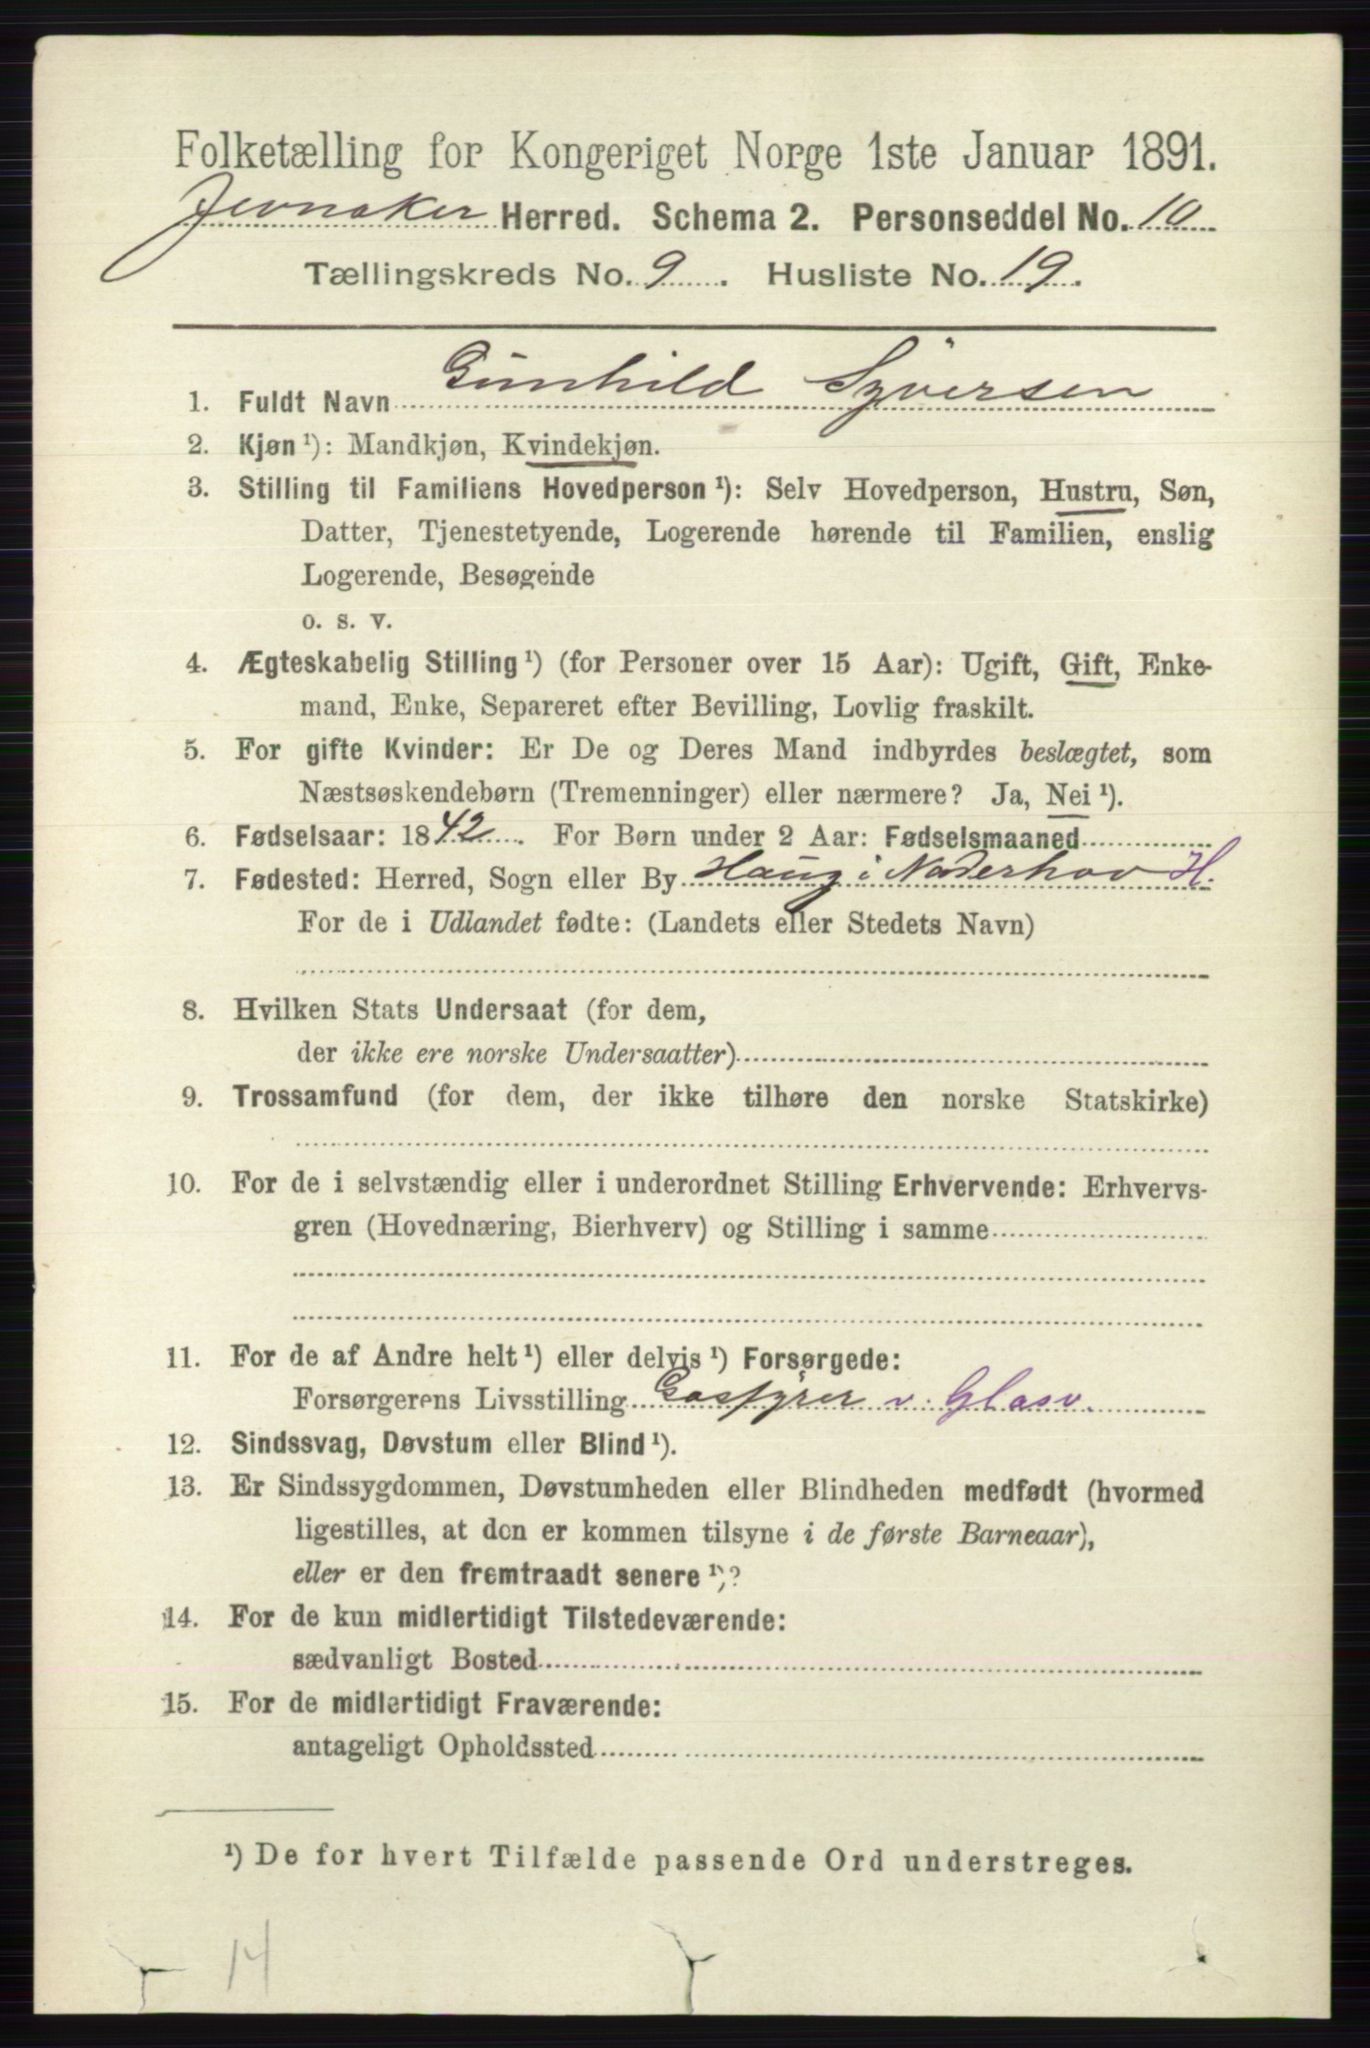 Folketælling for Kongeriget Norge 1ste Januar 1891.
Jevnaker Herred. Schema 2. Personseddel No. 10
Tællingskreds No. 9. Husliste No. 19.
1. Fuldt Navn Gunhild Syversen
2. Kjøn ¹): Mandkjøn, Kvindekjøn.
3. Stilling til Familiens Hovedperson ¹): Selv Hovedperson, Hustru, Søn,
Datter, Tjenestetyende, Logerende hørende til Familien, enslig
Logerende, Besøgende
o. s. v.
4. Ægteskabelig Stilling ¹) (for Personer over 15 Aar): Ugift, Gift, Enke-
mand, Enke, Separeret efter Bevilling, Lovlig fraskilt.
5. For gifte Kvinder: Er De og Deres Mand indbyrdes beslægtet, som
Næstsøskendebørn (Tremenninger) eller nærmere? Ja, Nei ¹).
6. Fødselsaar: 1842. For Børn under 2 Aar: Fødselsmaaned
7. Fødested: Herred, Sogn eller By Haug i Noderhov H.
For de i Udlandet fødte: (Landets eller Stedets Navn)
8. Hvilken Stats Undersaat (for dem,
der ikke ere norske Undersaatter)
9. Trossamfund (for dem, der ikke tilhøre den norske Statskirke)
10. For de i selvstændig eller i underordnet Stilling Erhvervende: Erhvervs-
gren (Hovednæring, Bierhverv) og Stilling i samme
11. For de af Andre helt ¹) eller delvis ¹) Forsørgede:
Forsørgerens Livsstilling Gasfyrer v. Glasv.
12. Sindssvag, Døvstum eller Blind ¹).
13. Er Sindssygdommen, Døvstumheden eller Blindheden medfødt (hvormed
ligestilles, at den er kommen tilsyne i de første Barneaar),
eller er den fremtraadt senere ¹)?
14. For de kun midlertidigt Tilstedeværende:
sædvanligt Bosted
15. For de midlertidigt Fraværende:
antageligt Opholdssted
¹) De for hvert Tilfælde passende Ord understreges.
14